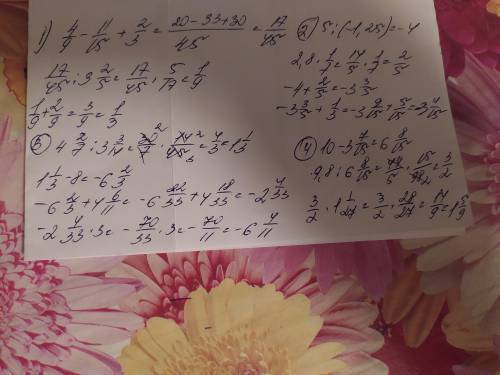 1) 4/9 - 11/15 + 2/3 = (20-33+30)/45 = 17/45
17/45 : 3 2/5 = 17/45 · 5/17 = 1/9
1/9 + 2/9 = 3/9 = 1/3
② 5 : (-1,25) = -4
2,8 · 1/7 = 14/5 · 1/7 = 2/5
-4 + 2/5 = -3 3/5
-3 3/5 + 1/3 = -3 9/15 + 5/15 = -3 4/15
③ 4 2/7 : 3 3/14 = 30²/7 · 14²/45₃ = 4/3 = 1 1/3
1 1/3 - 8 = -6 2/3
-6 2/3 + 4 6/11 = -6 22/33 + 4 18/33 = -2 4/33
-2 4/33 · 3 = -70/33 · 3 = -70/11 = -6 4/11
④ 10 - 3 7/15 = 6 8/15
9,8 : 6 8/15 = 49/5 · 15/98₂ = 3/2
3/2 · 1 1/27 = 3/2 · 28/27 = 14/9 = 1 5/9